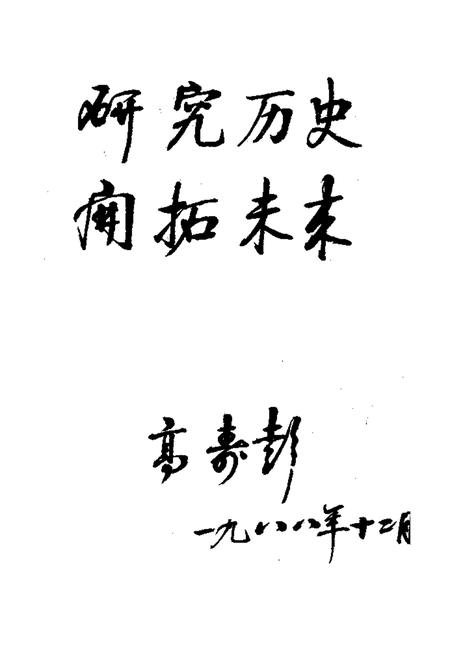 研究历史
開拓未来
高寿彭
一九八八年十二月